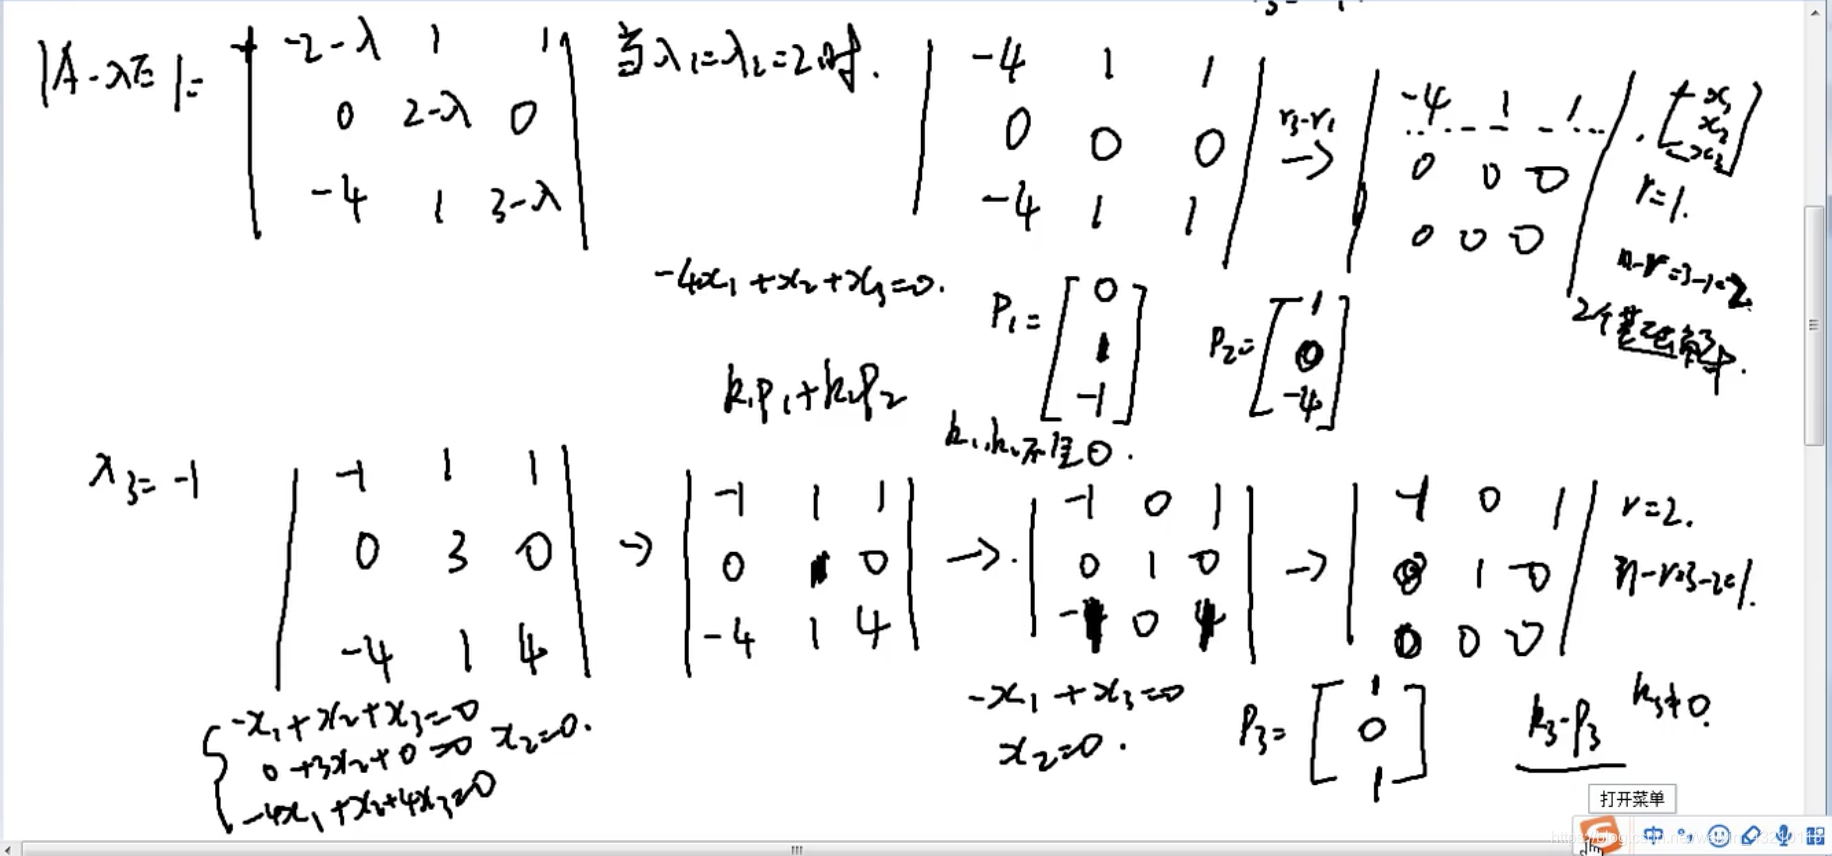 |A-λE|=
-2-λ 1 1
0 2-λ 0
-4 1 3-λ
当λ₁=λ₂=2时.
-4 1 1
0 0 0
-4 1 1
r₃-r₁
→
-4 1 1
0 0 0
0 0 0
x₁
x₂
x₃
r=1.
n-r=3-1=2.
2个基础解
-4x₁+x₂+x₃=0.
P₁=[0 1 -1]
P₂=[1 0 -4]
k₁P₁+k₂P₂
k₁,k₂不全0.
λ₃=-1
-1 1 1
0 3 0
-4 1 4
→
-1 1 1
0 1 0
-4 1 4
→
-1 0 1
0 1 0
-4 0 4
→
-1 0 1
0 1 0
0 0 0
r=2.
n-r=3-2=1.
-x₁+x₂+x₃=0
0+3x₂+0=0 x₂=0.
-4x₁+x₂+4x₃=0
-x₁+x₃=0
x₂=0.
P₃=[1 0 1]
k₃·P₃
k₃≠0.
打开菜单
中